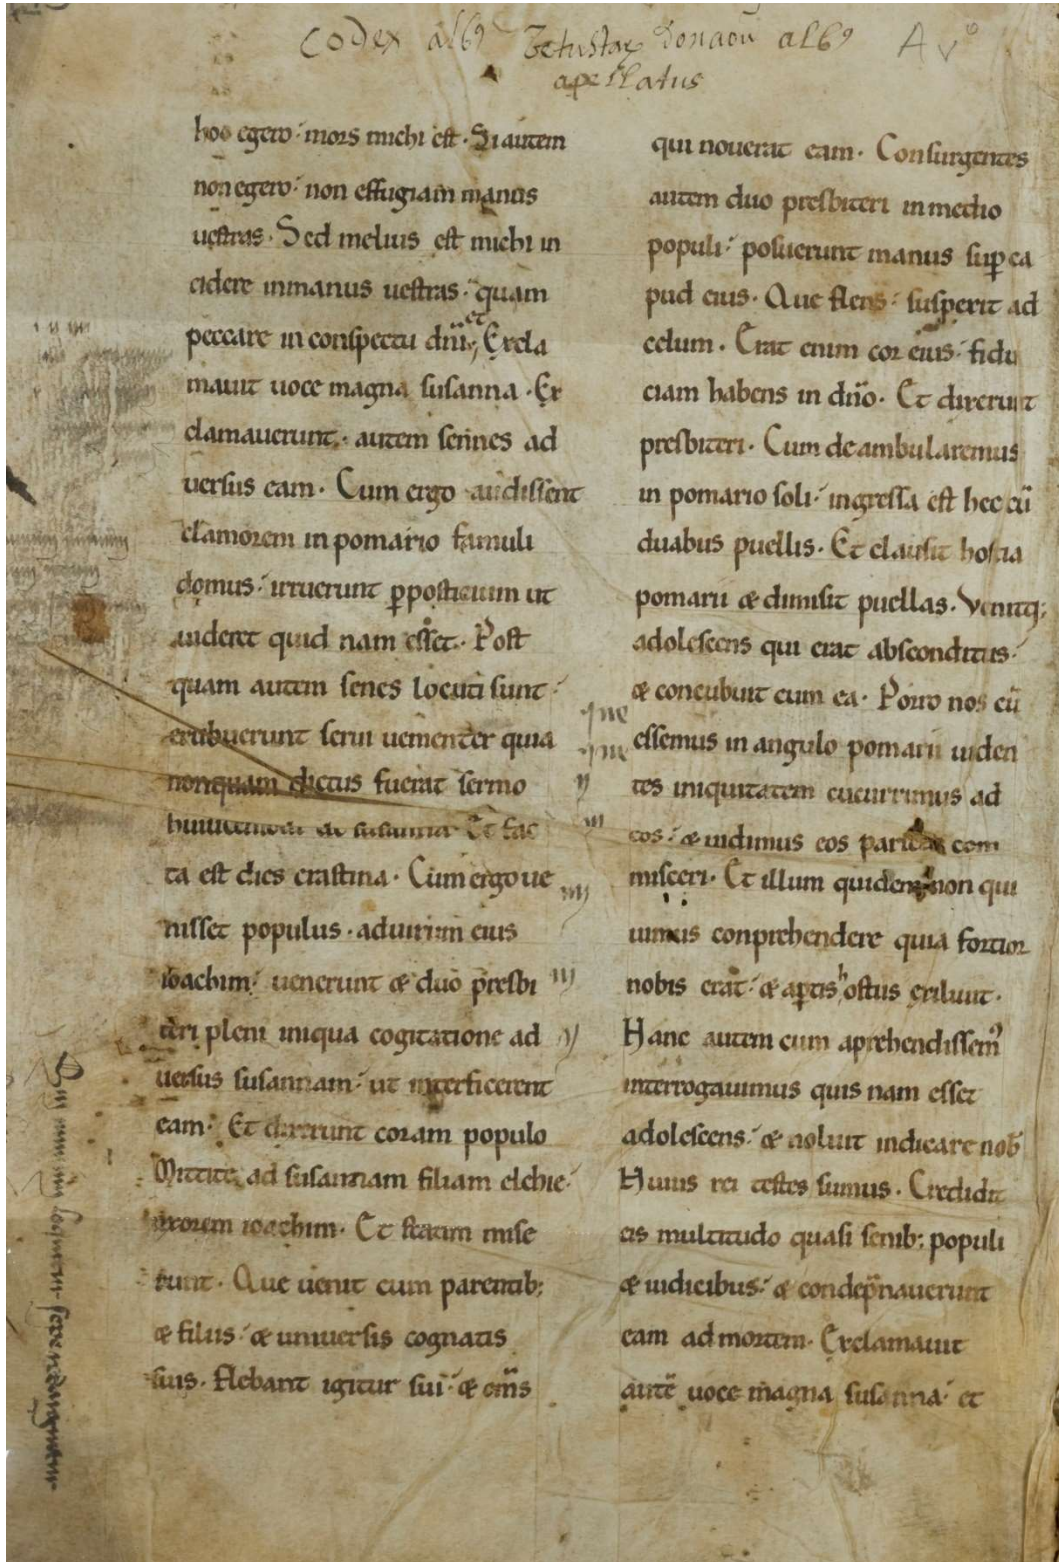 Codex alb9 Vetustax donaoū alb9 A v°
apellatus
hoc egero: mors michi est. Si autem
non egero: non effugiam manus
uestras. Sed melius est michi in
cidere inmanus uestras. quam
peccare in conspectu dnī; et Excla
mauit uoce magna susanna. Ex
clamauerunt. autem sennes ad
uersus eam. Cum ergo audissent
clamorem in pomario famuli
domus: irruerunt ꝑposticium ut
uideret quid nam esset. Post
quam autem senes locuti sunt:
erubuerunt serui uementer quia
nonquam dictus fuerat sermo
susanna Et fac
ta est dies crastina. Cum ergo ue
nisset populus. aduirum eius
ioachim: uenerunt & duo presbi
teri pleni iniqua cogitatione ad
uersus susannam: ut interficerent
eam: Et dixerunt coram populo
Mittite ad susannam filiam elchie:
uxorem ioachim. Et statim mise
runt. Que uenit cum parentib;
& filiis: & uniuersis cognatis
suis. Flebant igitur sui: & om̄s
qui nouerat eam. Consurgentes
autem duo presbiteri in medio
populi: posuerunt manus suꝑ ca
pud eius. Que flens: susperit ad
celum. Erat enim cor eius: fidu
ciam habens in dn̄o. Et dixerunt
presbiteri. Cum deambularemus
in pomario soli: ingressa est hec cū
duabus puellis. Et clausit hostia
pomarii & dimisit puellas. Venitq;
adolescens qui erat absconditus:
& concubuit cum ea. Porro nos cū
essemus in angulo pomarii uiden
tes iniquitatem cucurrimus ad
eos: & uidimus eos pariter com
misceri. Et illum quidem non qui
uimus conprehendere quia fortior
nobis erat: & aꝑtis hostus exiluit.
Hanc autem cum aprehendissem9
interrogauimus quis nam esset
adolescens: & noluit indicare nob̄
Huius rei testes sumus. Credidit
eis multitudo quasi senib; populi
& iudicibus: & condep̄nauerunt
eam ad mortem. Exclamauit
autē uoce magna susanna: et